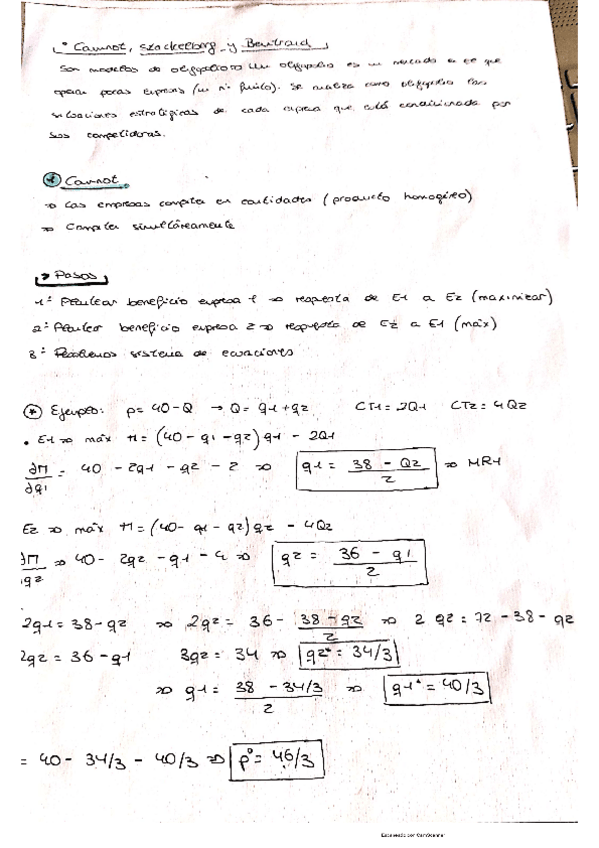 · Cournot, Stackelberg y Bertrand
Son modelos de oligopolio. Un oligopolio es un mercado en el que
operan pocas empresas (un nº finito). Se analiza como oligopolio las
situaciones estratégicas de cada empresa que está condicionada por
sus competidoras.
* Cournot.
⇒ Las empresas compiten en cantidades (producto homogéneo)
⇒ Compiten simultáneamente
→ Pasos
1º Plantear beneficio empresa 1 ⇒ respuesta de E1 a E2 (maximizar)
2º Plantear beneficio empresa 2 ⇒ respuesta de E2 a E1 (máx)
3º sistema de ecuaciones
* Ejemplo: p = 40 - Q → Q = q1 + q2 CT1 = 2Q1 CT2 = 4Q2
· E1 ⇒ máx Π = (40 - q1 - q2) q1 - 2Q1
∂Π/∂q1 = 40 - 2q1 - q2 - 2 ⇒ q1 = (38 - Q2)/2 ⇒ MR1
E2 ⇒ máx Π = (40 - q1 - q2) q2 - 4Q2
∂Π/∂q2 ⇒ 40 - 2q2 - q1 - 4 ⇒ q2 = (36 - q1)/2
2q1 = 38 - q2 ⇒ 2q2 = 36 - (38 - q2)/2 ⇒ 2 q2 = 72 - 38 - q2
2q2 = 36 - q1 3q2 = 34 ⇒ q2* = 34/3
⇒ q1 = (38 - 34/3)/2 ⇒ q1* = 40/3
= 40 - 34/3 - 40/3 ⇒ p° = 46/3
Escaneado por CamScanner